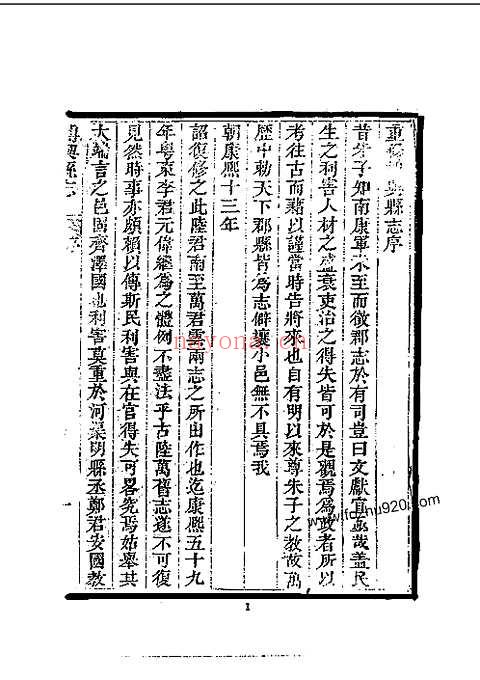 重修博興縣志序
昔朱子知南康軍未至而徵郡志於有司豈曰文獻宜爾哉蓋民
生之祠告人材之盛衰吏治之得失皆可於是觀焉為政者所以
考往古而藉以謹當時告將來也自有明以來尊朱子之教故萬
歷中勅天下郡縣皆為志僻壤小邑無不具焉我
朝康熙十三年
詔復修之此陸君南至萬君雲兩志之所由作也迄康熙五十九
年粵東李君元偉繼為之體例不盡法乎古陸萬舊志遂不可復
見然時事亦頗賴以傳斯民利害與在官得失可畧究焉姑舉其
大端言之邑固齊澤國也利害莫重於河渠明縣丞鄭君安國教
博興縣志 序 一
nayona.cn
www.fozhu920.com
1